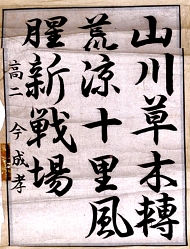 山川草木轉
荒涼十里風
腥新戦場
高二 今成孝